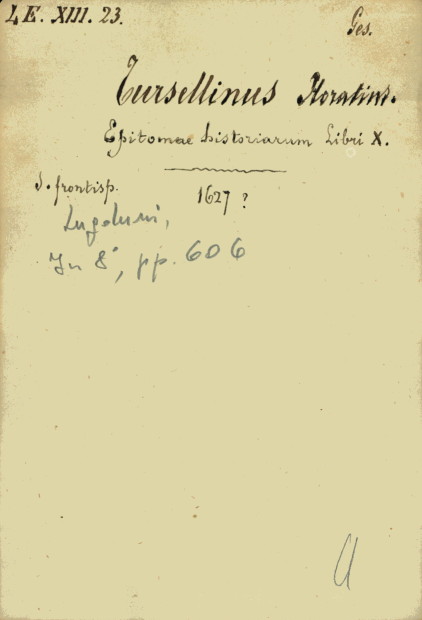 LE. XIII. 23.
Ges.
Tursellinus Horatius.
Epitomae historiarum Libri X.
S. frontisp.
1627 ?
Lugduni,
In 8°, pp. 606